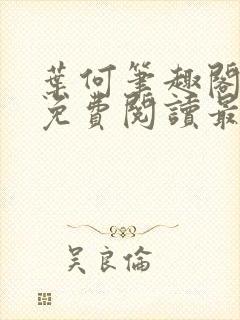 葉何筆趣閣
免費閱讀最
吳良倫